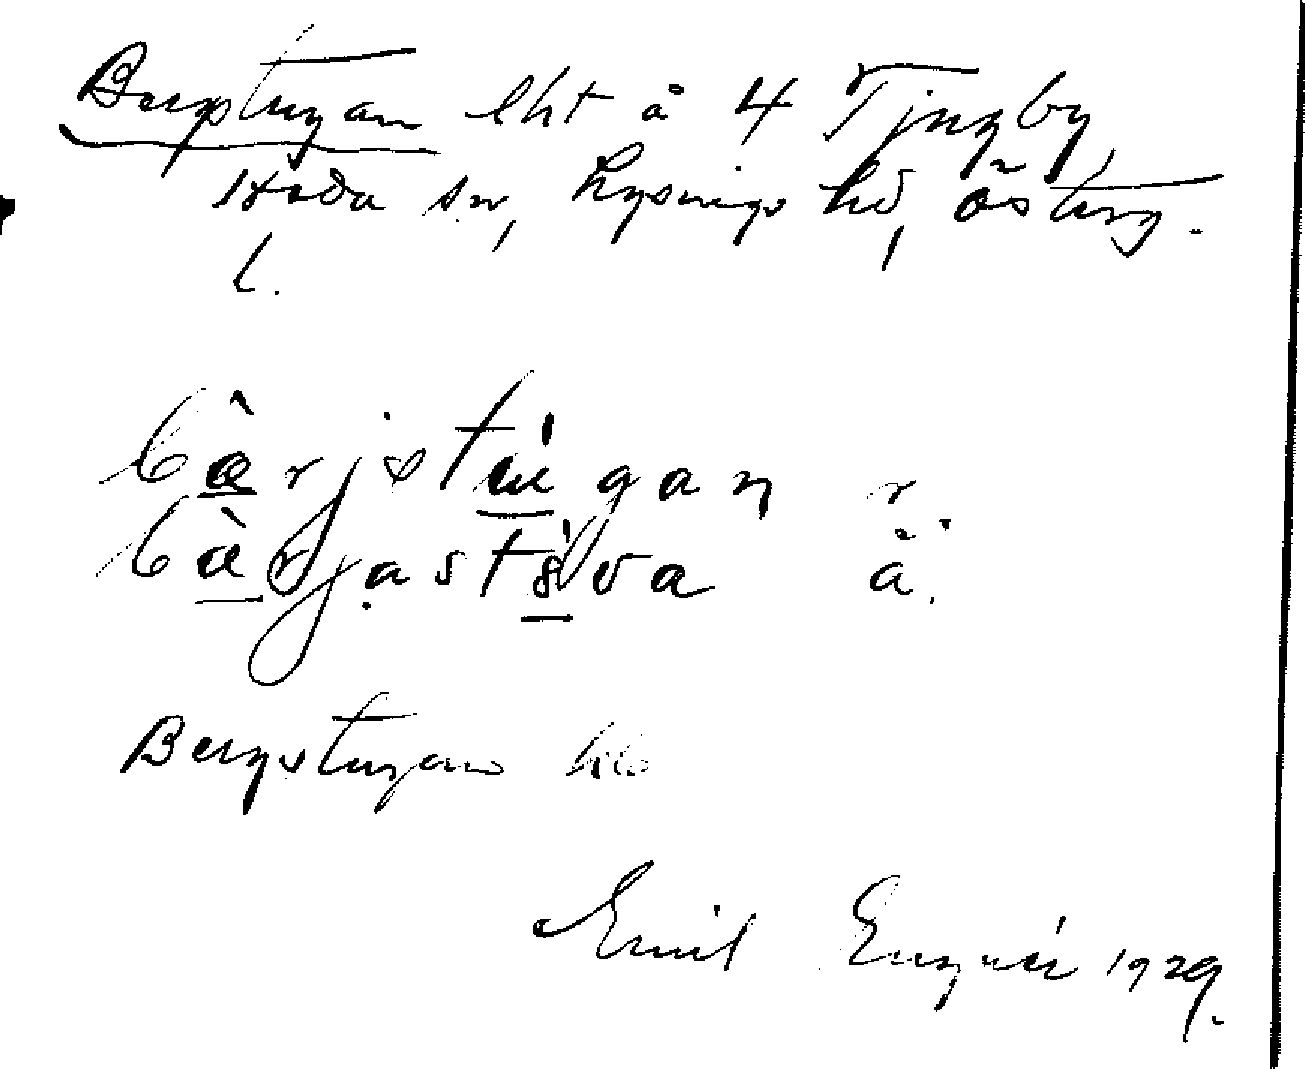 Bergstugan lht å 4 Tjugby,
Heda sn, Lysings hd, Österg.
l.
bæ̀rjstúgan r.
bæ̀rjast va ä.
Bergstugan
Emil Engnér 1929.